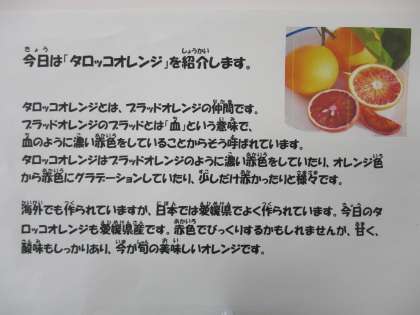 今日は「タロッコオレンジ」を紹介します。
タロッコオレンジとは、ブラッドオレンジの仲間です。
ブラッドオレンジのブラッドとは「血」という意味で、
血のように濃い赤色をしていることからそう呼ばれています。
タロッコオレンジはブラッドオレンジのように濃い赤色をしていたり、オレンジ色
から赤色にグラデーションしていたり、少しだけ赤かったりと様々です。
海外でも作られていますが、日本では愛媛県でよく作られています。今日のタ
ロッコオレンジも愛媛県産です。赤色でびっくりするかもしれませんが、甘く、
酸味もしっかりあり、今が旬の美味しいオレンジです。